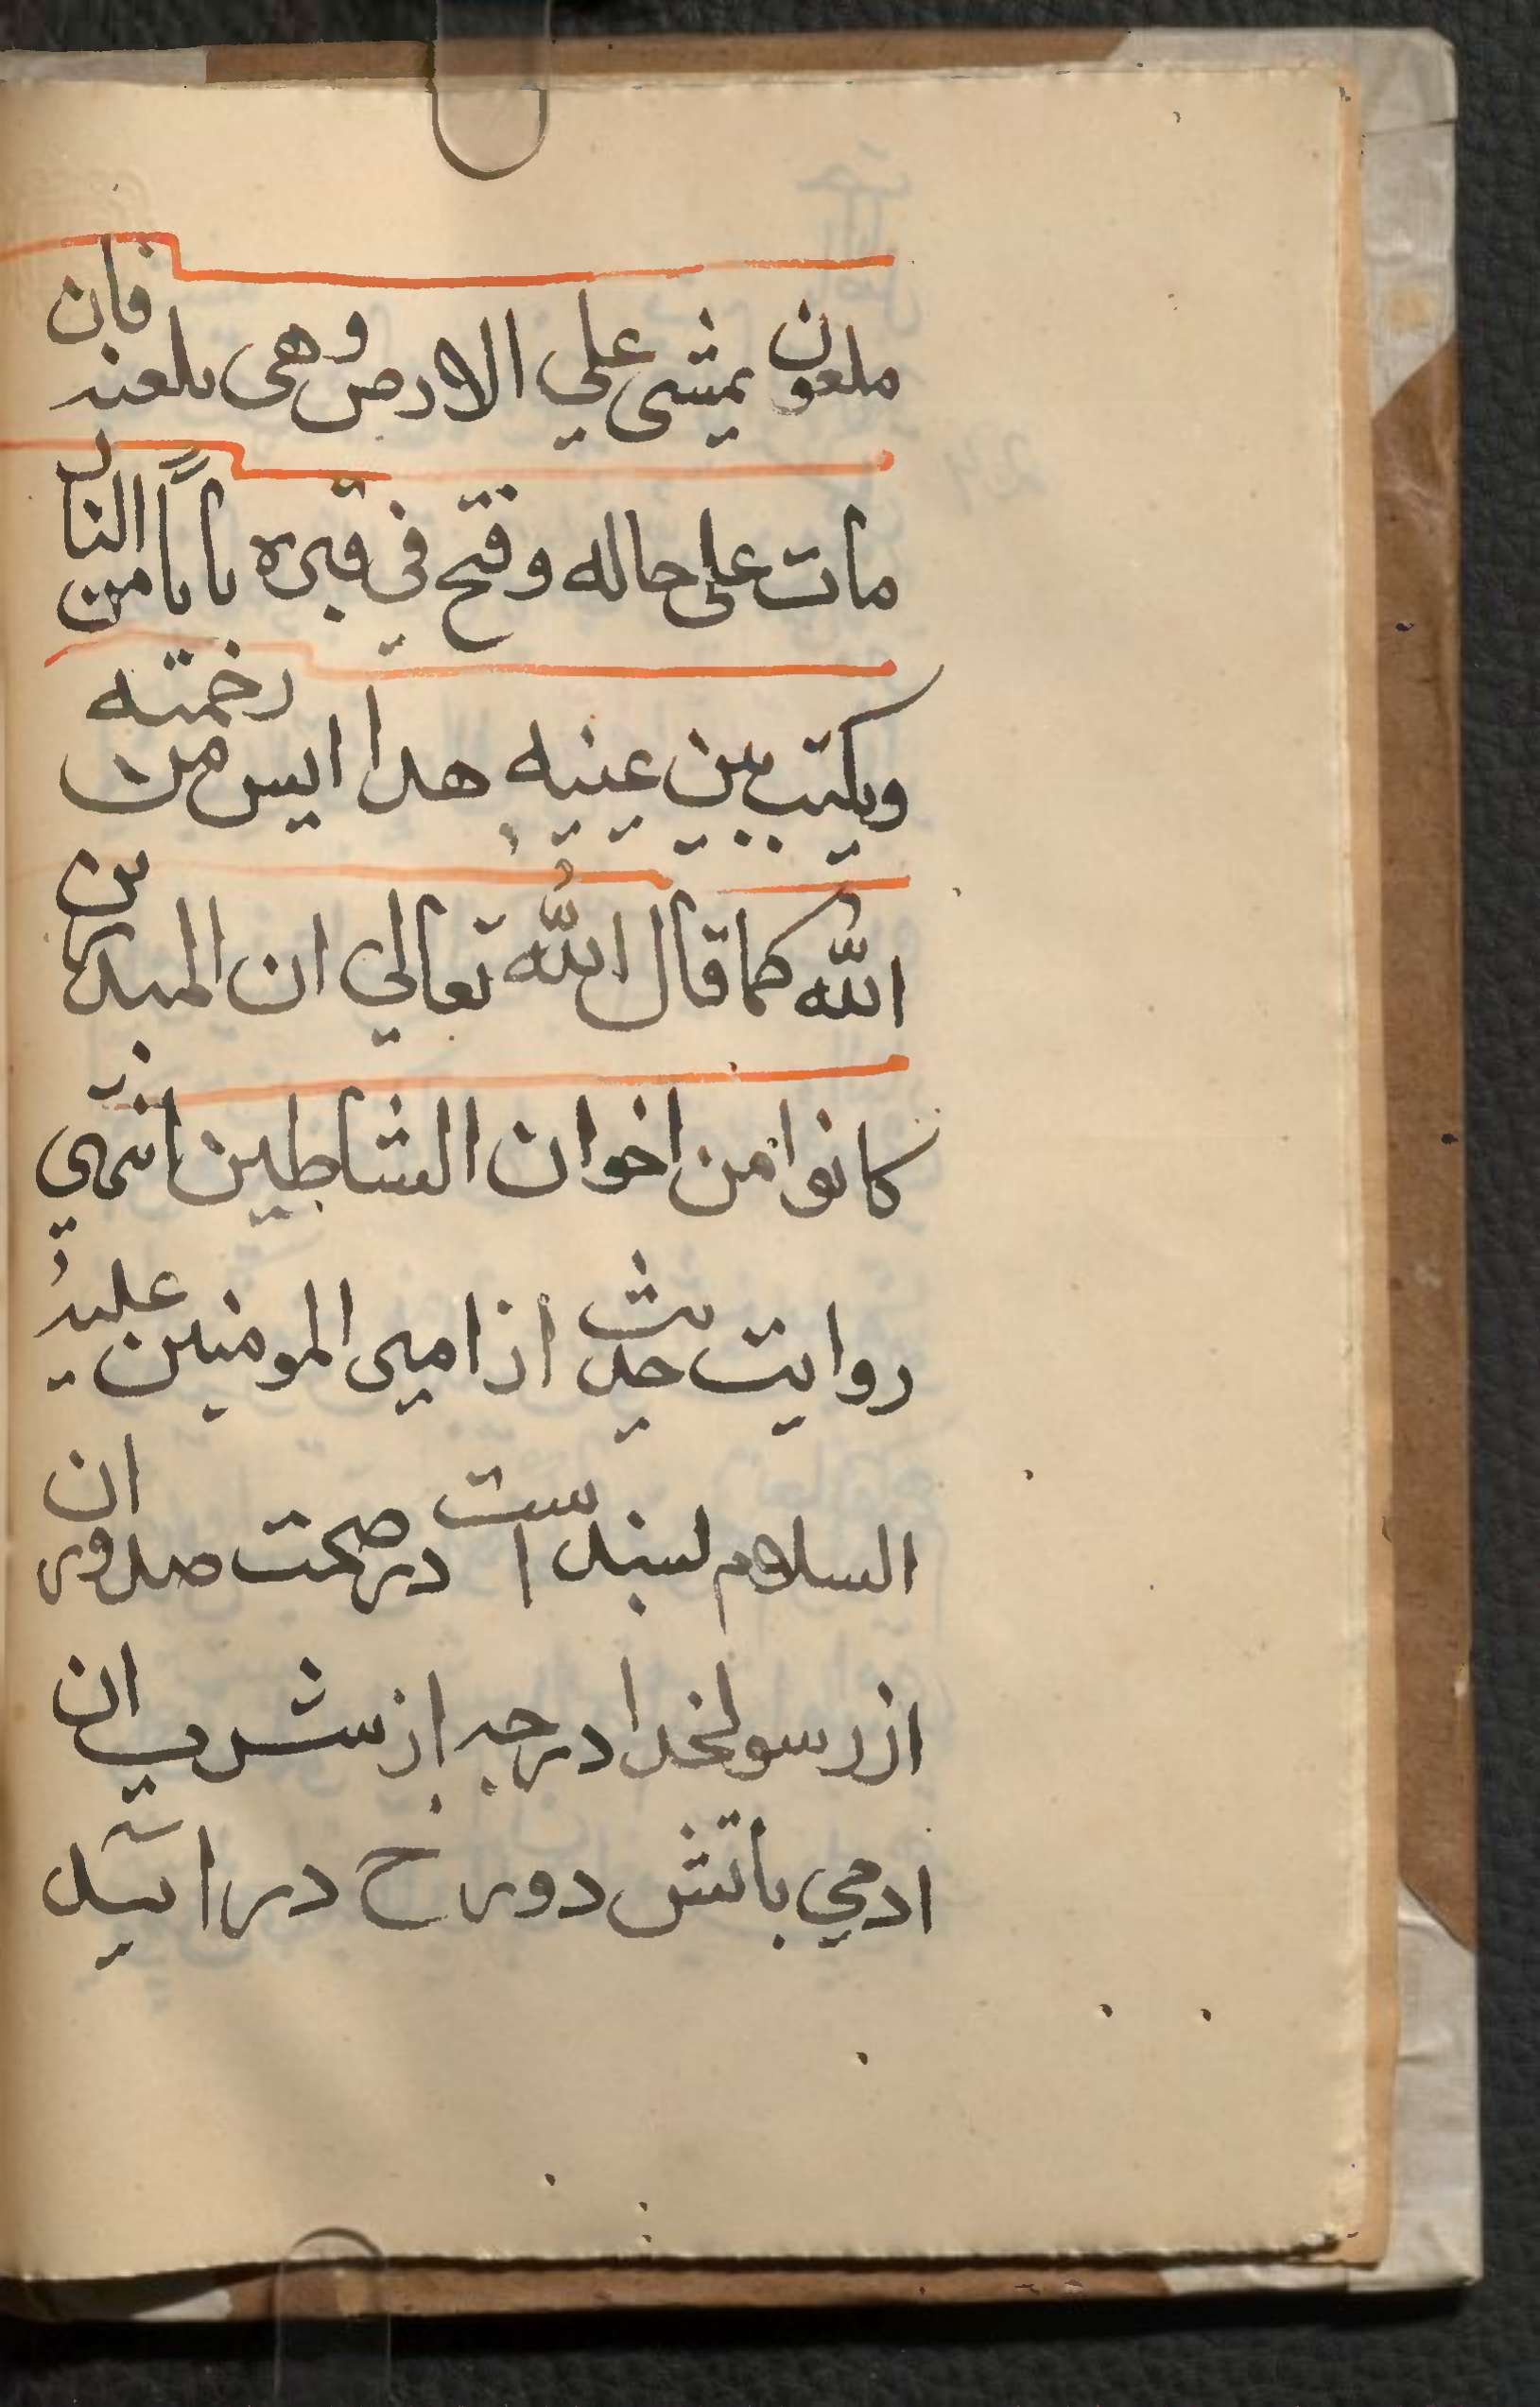 ملعون يمشى علي الارض وهى تلعنه فان
مات على حاله وفتح في قبره باباً من النار
ويكتب بين عينيه هدا ايس من رحمته
الله كما قال الله تعالي ان المبدرين
كانوا من اخوان الشاطين انتهي
روايت حديث از امير المومنين عليه
السلام لسند است در صحت صدور ان
از رسولخدا درجه از شرب ان
ادمي باتش دورخ درايد